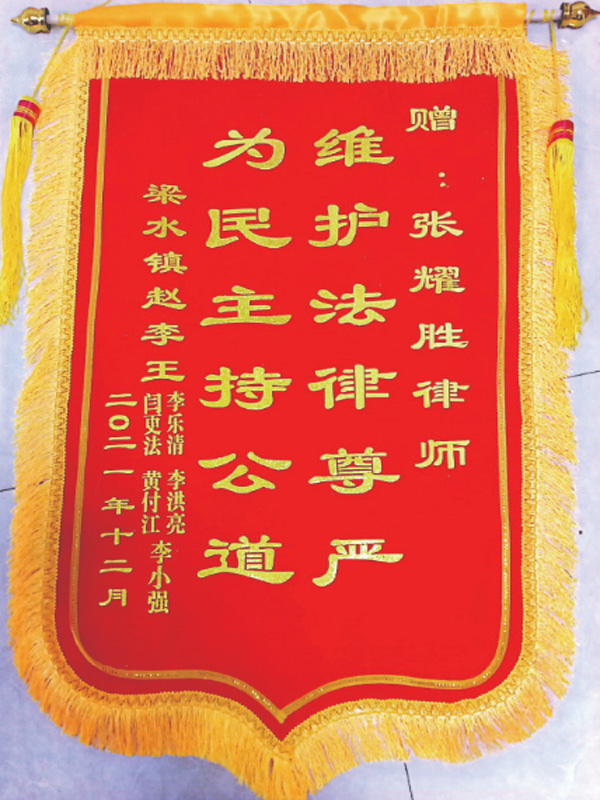 赠：张耀胜律师
维护法律尊严
为民主持公道
梁水镇赵李王
李乐清 李洪亮
闫更法 黄付江 李小强
二〇二一年十二月